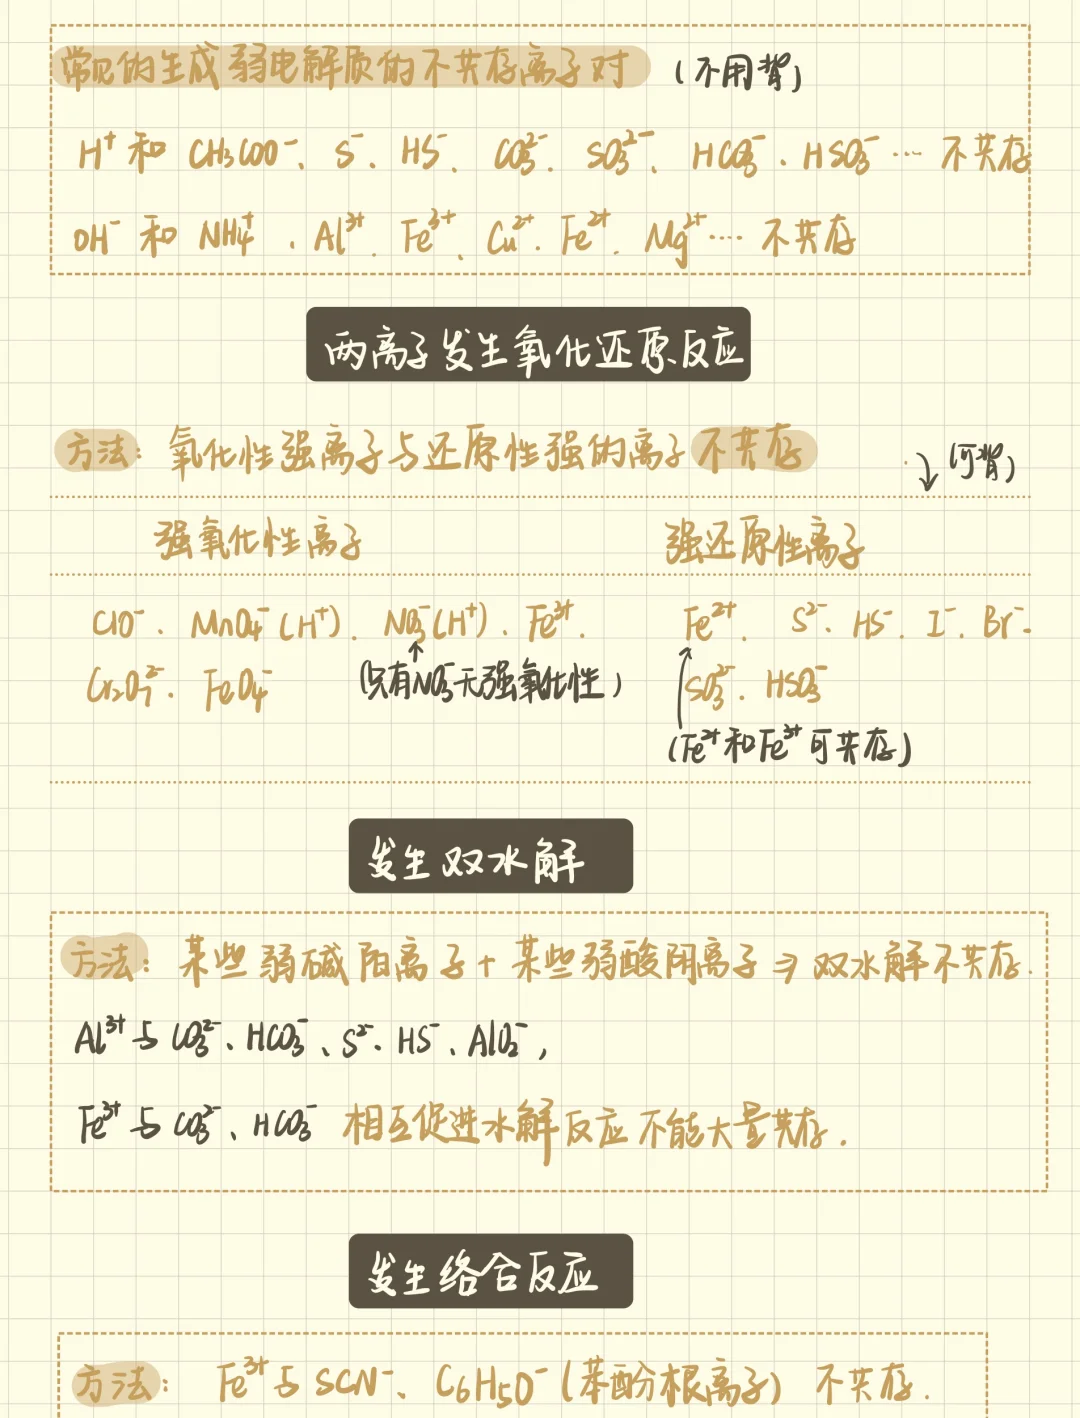 常见的生成弱电解质的不共存离子对 (不用背)
H⁺ 和 CH₃COO⁻、S⁻、HS⁻、CO₃²⁻、SO₃²⁻、HCO₃⁻、HSO₃⁻… 不共存
OH⁻ 和 NH₄⁺、Al³⁺、Fe³⁺、Cu²⁺、Fe²⁺、Mg²⁺… 不共存
两离子发生氧化还原反应
方法：氧化性强离子与还原性强的离子不共存 (可背)
强氧化性离子 强还原性离子
ClO⁻、MnO₄⁻(H⁺)、NO₃⁻(H⁺)、Fe³⁺、 Fe²⁺、S²⁻、HS⁻、I⁻、Br⁻、
Cr₂O₇²⁻、FeO₄⁻ (只有NO₃⁻无强氧化性) SO₃²⁻、HSO₃⁻
(Fe²⁺和Fe³⁺可共存)
发生双水解
方法：某些弱碱阳离子+某些弱酸阴离子⇒双水解不共存.
Al³⁺与CO₃²⁻、HCO₃⁻、S²⁻、HS⁻、AlO₂⁻,
Fe³⁺与CO₃²⁻、HCO₃⁻ 相互促进水解反应不能大量共存.
发生络合反应
方法： Fe³⁺与SCN⁻、C₆H₅O⁻(苯酚根离子) 不共存.